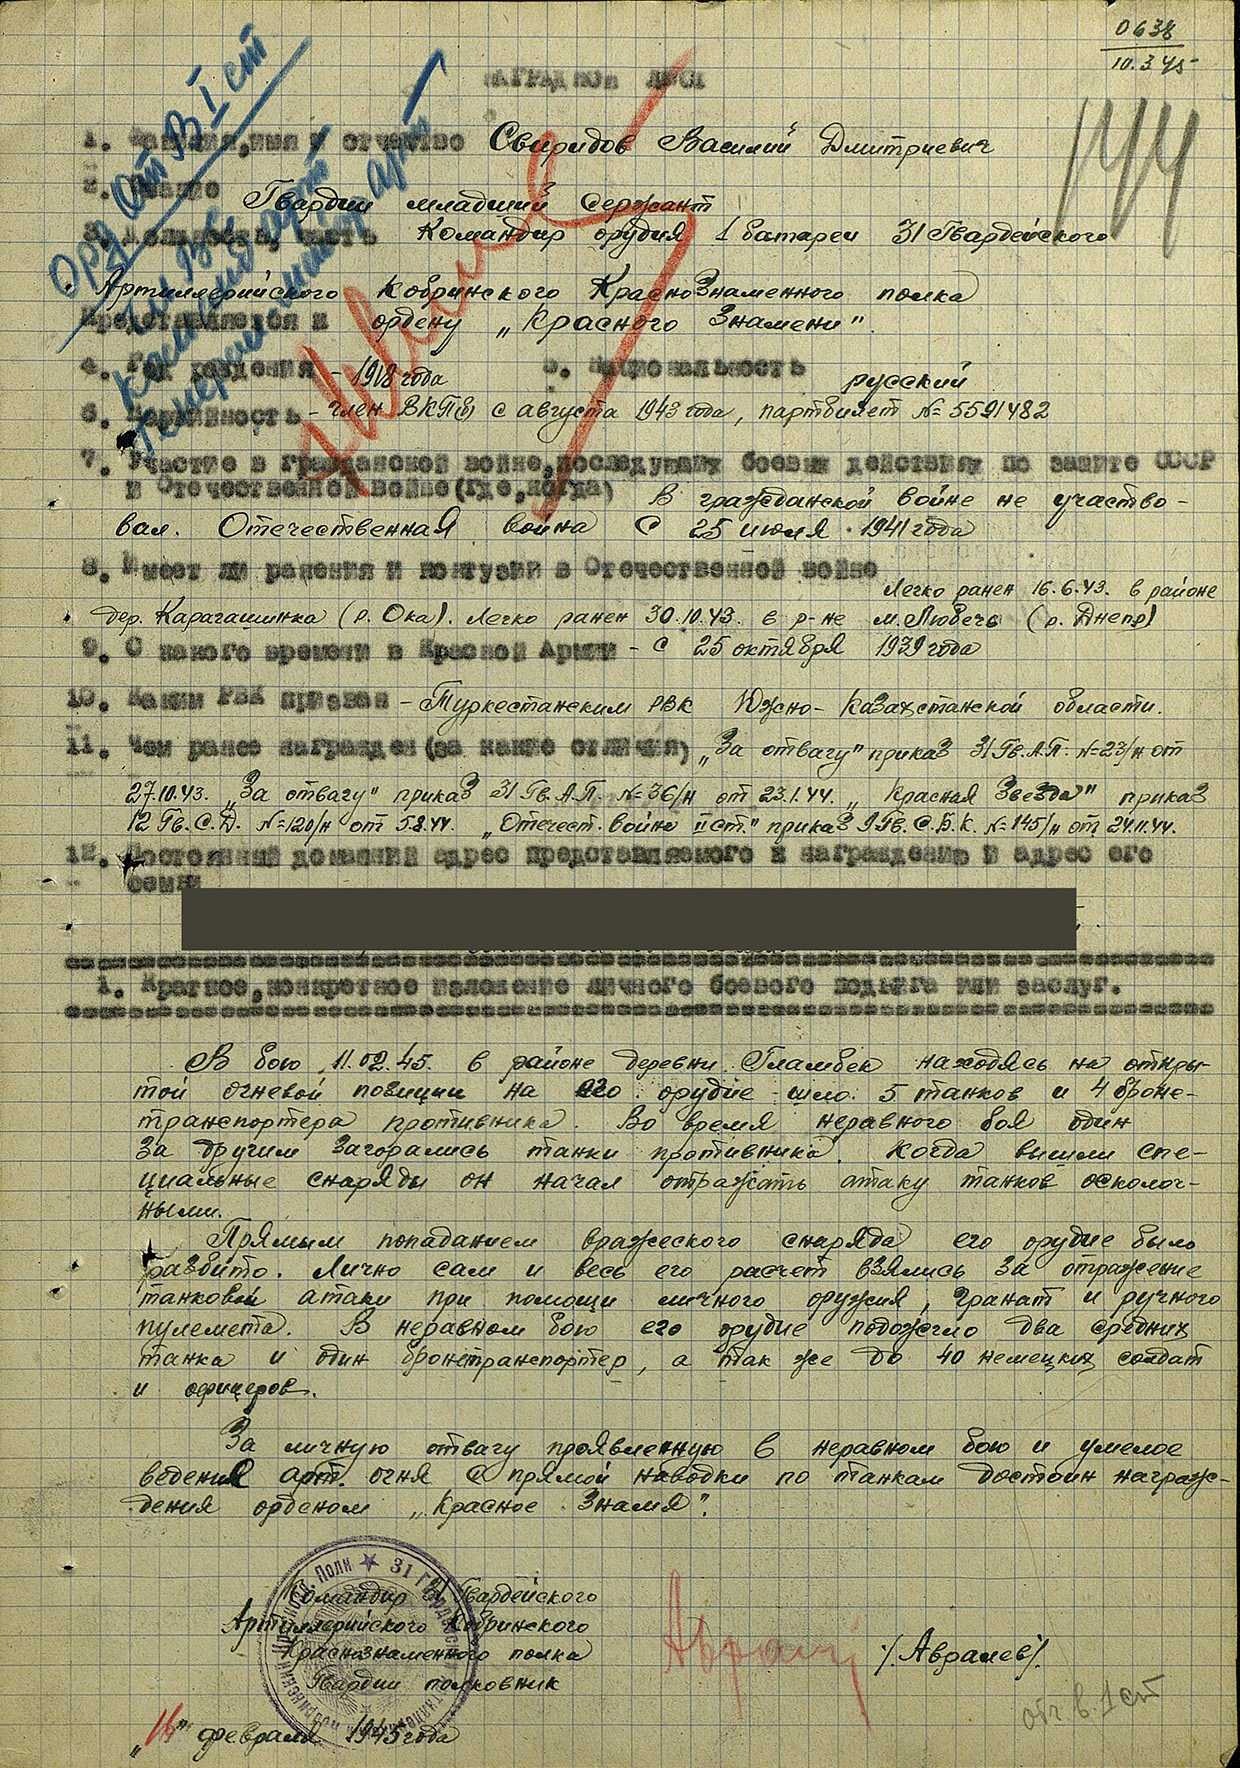 0638
10.3.45
НАГРАДНОЙ ЛИСТ
144
1. Фамилия, имя и отчество Свиридов Василий Дмитриевич
2. Звание Гвардии младший сержант
3. Должность, часть Командир орудия 1 батареи 31 Гвардейского
Артиллерийского Кобринского Краснознаменного полка
Представляется к ордену „Красного Знамени".
4. Год рождения - 1918 года 5. Национальность русский
6. Партийность - член ВКП(б) с августа 1943 года, партбилет №= 5591482
7. Участие в гражданской войне, последующих боевых действиях по защите СССР
и Отечественной войне (где, когда) В гражданской войне не участво-
вал. Отечественная война С 25 июля 1941 года
8. Имеет ли ранения и контузии в Отечественной войне
Легко ранен 16.6.43. в районе
дер. Карагашинка (р. Ока). Легко ранен 30.10.43. в р-не м. Любечь (р. Днепр)
9. С какого времени в Красной Армии - с 25 октября 1939 года
10. Каким РВК призван - Туркестанским РВК Южно-Казахстанской области.
11. Чем ранее награжден (за какие отличия) „За отвагу" приказ 31 Гв. А.П. №=23/н от
27.10.43. „За отвагу" приказ 31 Гв. А.П. №=36/н от 23.1.44. „Красная Звезда" приказ
12 Гв. С.Д. №=120/н от 5.8.44. „Отечест. война II ст." приказ 9 Гв. С.Б.К. №=145/н от 24.11.44.
12. Постоянный домашний адрес представляемого к награждению и адрес его
семьи
1. Краткое, конкретное изложение личного боевого подвига или заслуг.
В бою 11.02.45. в районе деревни Гламбек находясь на откры-
той огневой позиции на его орудие шло 5 танков и 4 броне-
транспортера противника. Во время неравного боя один
за другим загорались танки противника. Когда вышли спе-
циальные снаряды он начал отражать атаку танков осколоч-
ными.
Прямым попаданием вражеского снаряда его орудие было
разбито. Лично сам и весь его расчет взялись за отражение
танковой атаки при помощи личного оружия, гранат и ручного
пулемета. В неравном бою его орудие подожгло два средних
танка и один бронетранспортер, а так же до 40 немецких солдат
и офицеров.
За личную отвагу проявленную в неравном бою и умелое
ведения арт. огня с прямой наводки по танкам достоин награж-
дения орденом „Красное Знамя".
Командир 31 Гвардейского
Артиллерийского Кобринского
Краснознаменного полка
Гвардии полковник
/Авралев/.
„14" февраля 1945 года
отч. в. 1 ст
Орд От В I ст